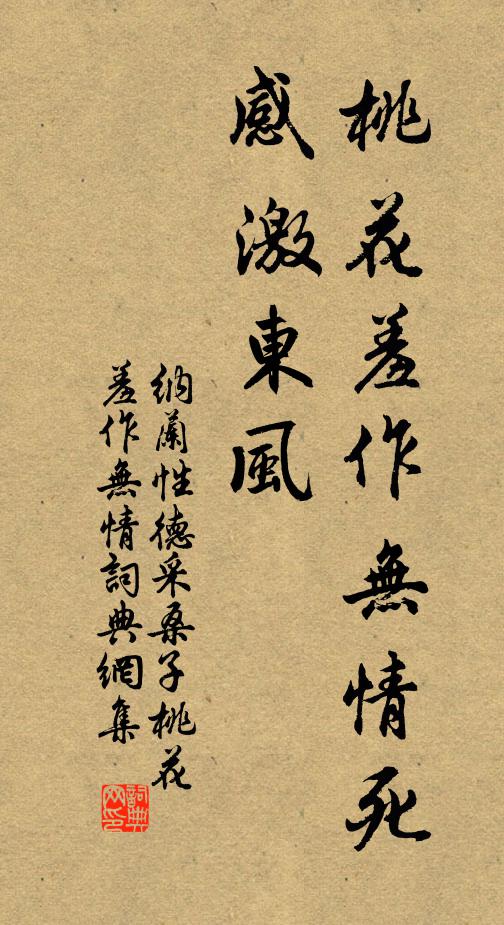 桃花羞作無情死
感激東風
納蘭性德采桑子桃花
羞作無情詞典網集
詞典
网印